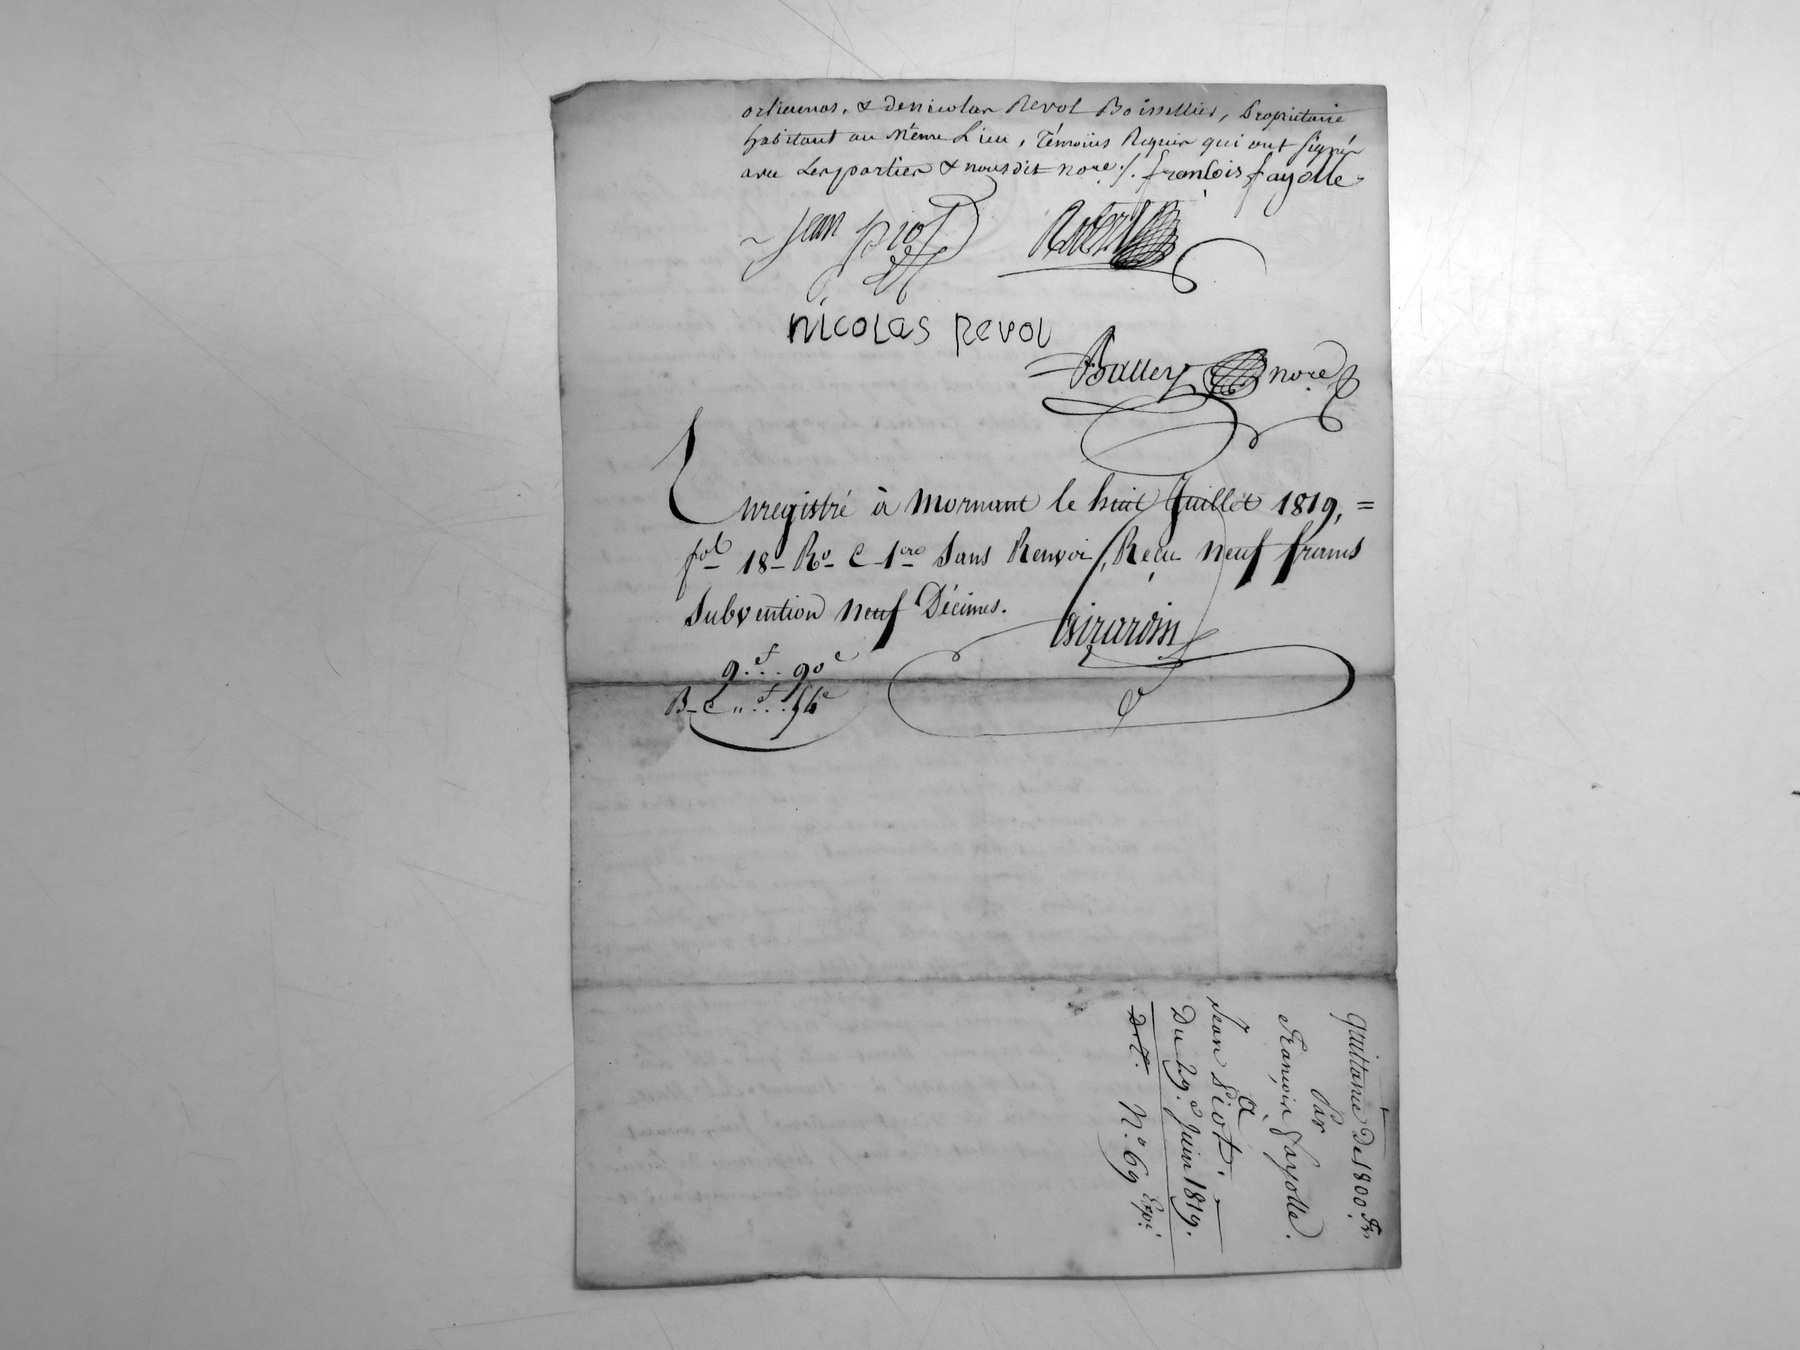 orlienas, & de nicolas Revol Boissellier, Propriétaire
habitant au Même Lieu, Témoins Requis qui ont signé
avec Les parties & nous dit nore ./. françois fayolle
jean piot Robert
nicolas Revol
Ballery nore
Enregistré à Mornant le huit Juillet 1819, =
fol 18 Ro C 1ere Sans Renvoi, Reçu Neuf francs
Subvention Neuf Décimes. Girardin
9.f... 90c
quittance De 1800 Fr.
Par
François Fayolle.
à
Jean Piot.
Du 29.e Juin 1819.
N.o 69 Exp.